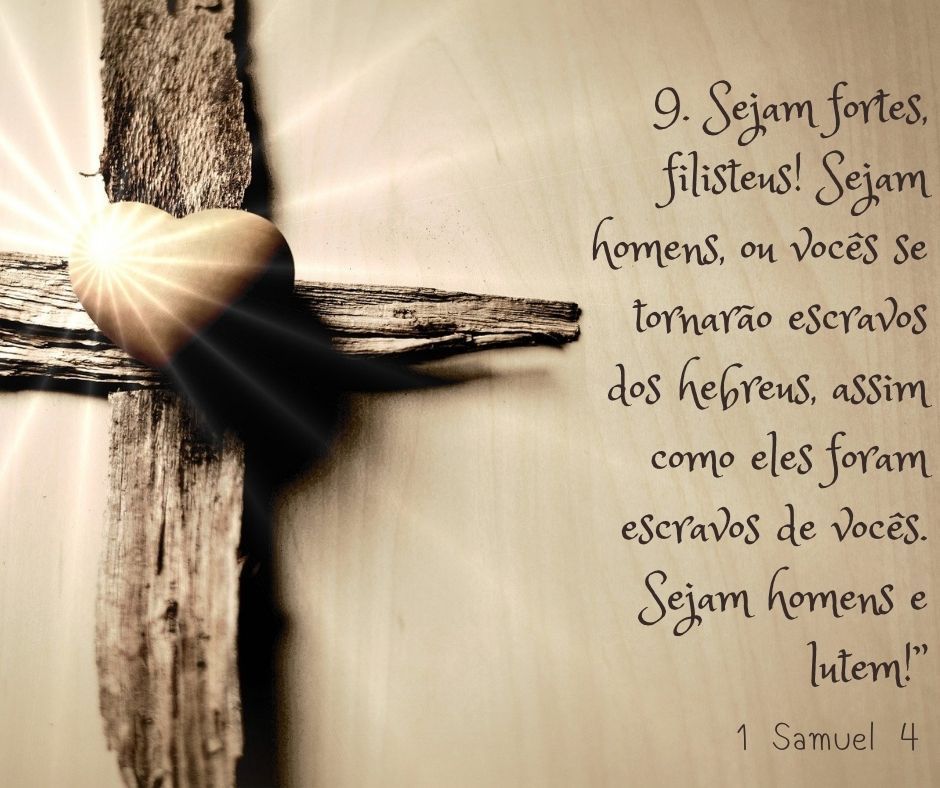 9. Sejam fortes,
filisteus! Sejam
homens, ou vocês se
tornarão escravos
dos hebreus, assim
como eles foram
escravos de vocês.
Sejam homens e
lutem!”
1 Samuel 4